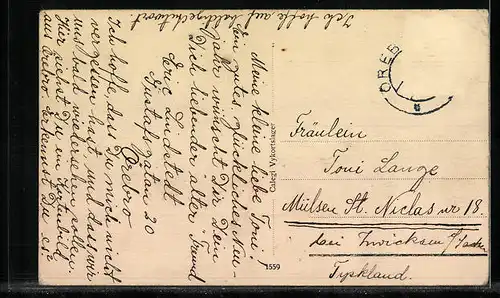 Meine kleine, liebe Toni!
Ein gutes, glückliches Neu-
jahr wünscht Dir Dein
Dich liebender alter Freund
Eric Lindstedt
Gustafsgatan 20
Örebro
Ich hoffe, dass Du mich nicht
vergessen hast und dass wir
uns bald wiedersehen sollen.
Hier siehst Du ein Kartenbild
aus Örebro. Erkennst Du es?
Ich hoffe auf baldige Antwort.
ÖREB
1559
Fräulein
Toni Lange
Mülsen St. Niclas nr 18.
bei Zwickau i/Sachs.
Tyskland.